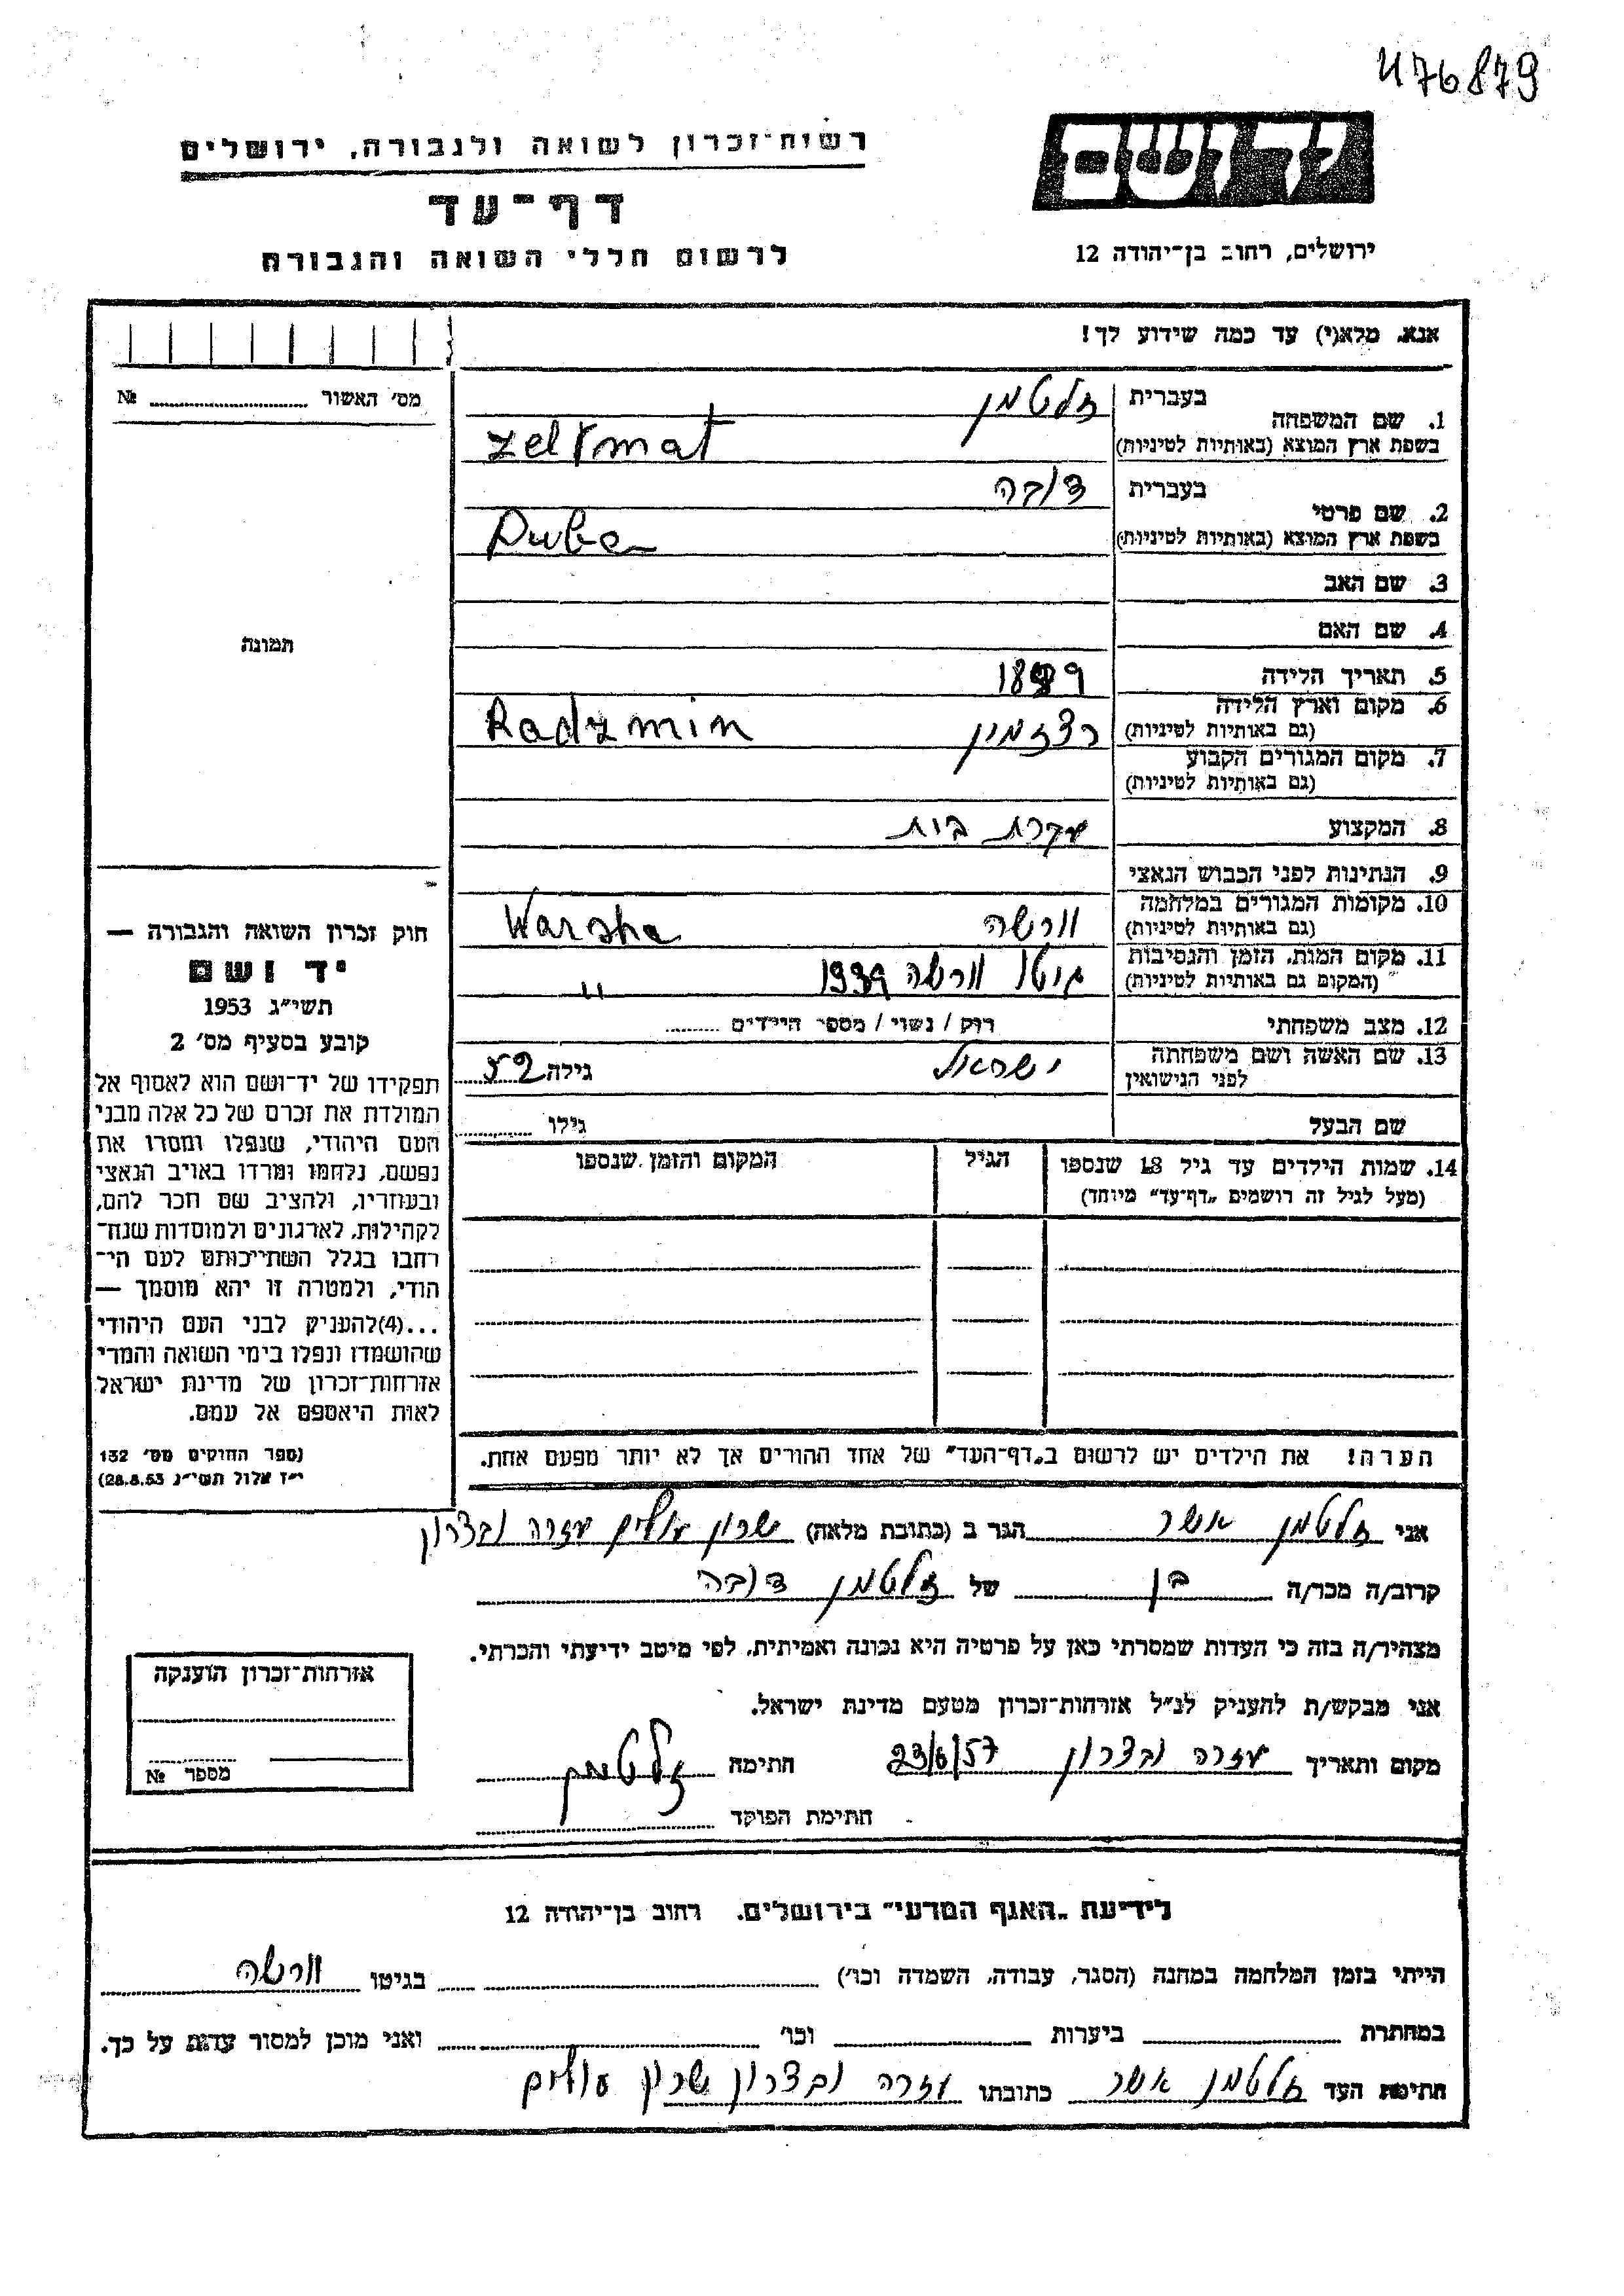 476879
יד ושם
רשות־זכרון לשואה ולגבורה, ירושלים
דף־עד
לרשום חללי השואה והגבורה
ירושלים, רחוב בן־יהודה 12
אנא, מלא(י) עד כמה שידוע לך!
מס' האשור № ........
1. שם המשפחה
בעברית זלטמן
בשפת ארץ המוצא (באותיות לטיניות) Zeltmat
2. שם פרטי
בעברית דובה
בשפת ארץ המוצא (באותיות לטיניות) Duba
3. שם האב
4. שם האם
5. תאריך הלידה
6. מקום וארץ הלידה רדזמין Radzmin
(גם באותיות לטיניות)
7. מקום המגורים הקבוע
(גם באותיות לטיניות)
8. המקצוע עקרת בית
9. הנתינות לפני הכבוש הנאצי
10. מקומות המגורים במלחמה וורשה Warsha
(גם באותיות לטיניות)
11. מקום המות, הזמן והנסיבות גיטו וורשה 1939 "
(המקום גם באותיות לטיניות)
12. מצב משפחתי רוק / נשוי / מספר הילדים ........
13. שם האשה ושם משפחתה ישראל גילה 52
לפני הנישואין
שם הבעל גילו ........
14. שמות הילדים עד גיל 18 שנספו הגיל המקום והזמן שנספו
(מעל לגיל זה רושמים „דף־עד" מיוחד)
הערה! את הילדים יש לרשום ב„דף־העד" של אחד ההורים אך לא יותר מפעם אחת.
תמונה
חוק זכרון השואה והגבורה —
יד ושם
תשי"ג 1953
קובע בסעיף מס' 2
תפקידו של יד־ושם הוא לאסוף אל
המולדת את זכרם של כל אלה מבני
העם היהודי, שנפלו ומסרו את
נפשם, נלחמו ומרדו באויב הנאצי
ובעוזריו, ולהציב שם וזכר להם,
לקהילות, לארגונים ולמוסדות שנח־
רבו בגלל השתייכותם לעם הי־
הודי, ולמטרה זו יהא מוסמך —
...(4)להעניק לבני העם היהודי
שהושמדו ונפלו בימי השואה והמרי
אזרחות־זכרון של מדינת ישראל
לאות היאספם אל עמם.
(ספר החוקים מס' 132
י"ז אלול תשי"ג 28.8.53)
אני זלטמן אשר הגר ב (כתובת מלאה) שכון עולים עזרה ובצרון
קרוב/ה מכר/ה בן של זלטמן דובה
מצהיר/ה בזה כי העדות שמסרתי כאן על פרטיה היא נכונה ואמיתית, לפי מיטב ידיעתי והכרתי.
אני מבקש/ת להעניק לנ"ל אזרחות־זכרון מטעם מדינת ישראל.
מקום ותאריך עזרה ובצרון 23/6/57 חתימה זלטמן
חתימת הפוקד
אזרחות־זכרון הוענקה
מספר №
לידיעת „האגף המדעי" בירושלים, רחוב בן־יהודה 12
הייתי בזמן המלחמה במחנה (הסגר, עבודה, השמדה וכו') בגיטו וורשה
במחתרת ביערות וכו' ואני מוכן למסור עדות על כך.
חתימת העד זלטמן אשר כתובתו עזרה ובצרון שכון עולים